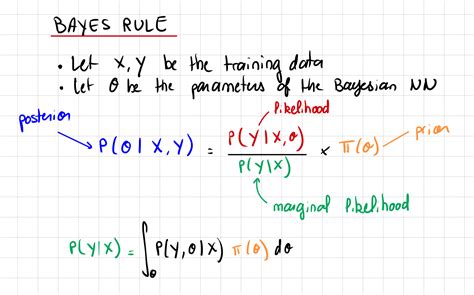 BAYES RULE
• Let X, Y be the training data
• Let θ be the parameters of the Bayesian NN
likelihood
posterior
P(θ | X, Y) = P(Y | X, θ) / P(Y | X) × π(θ)
prior
marginal likelihood
P(Y|X) = ∫_θ P(Y, θ | X) π(θ) dθ